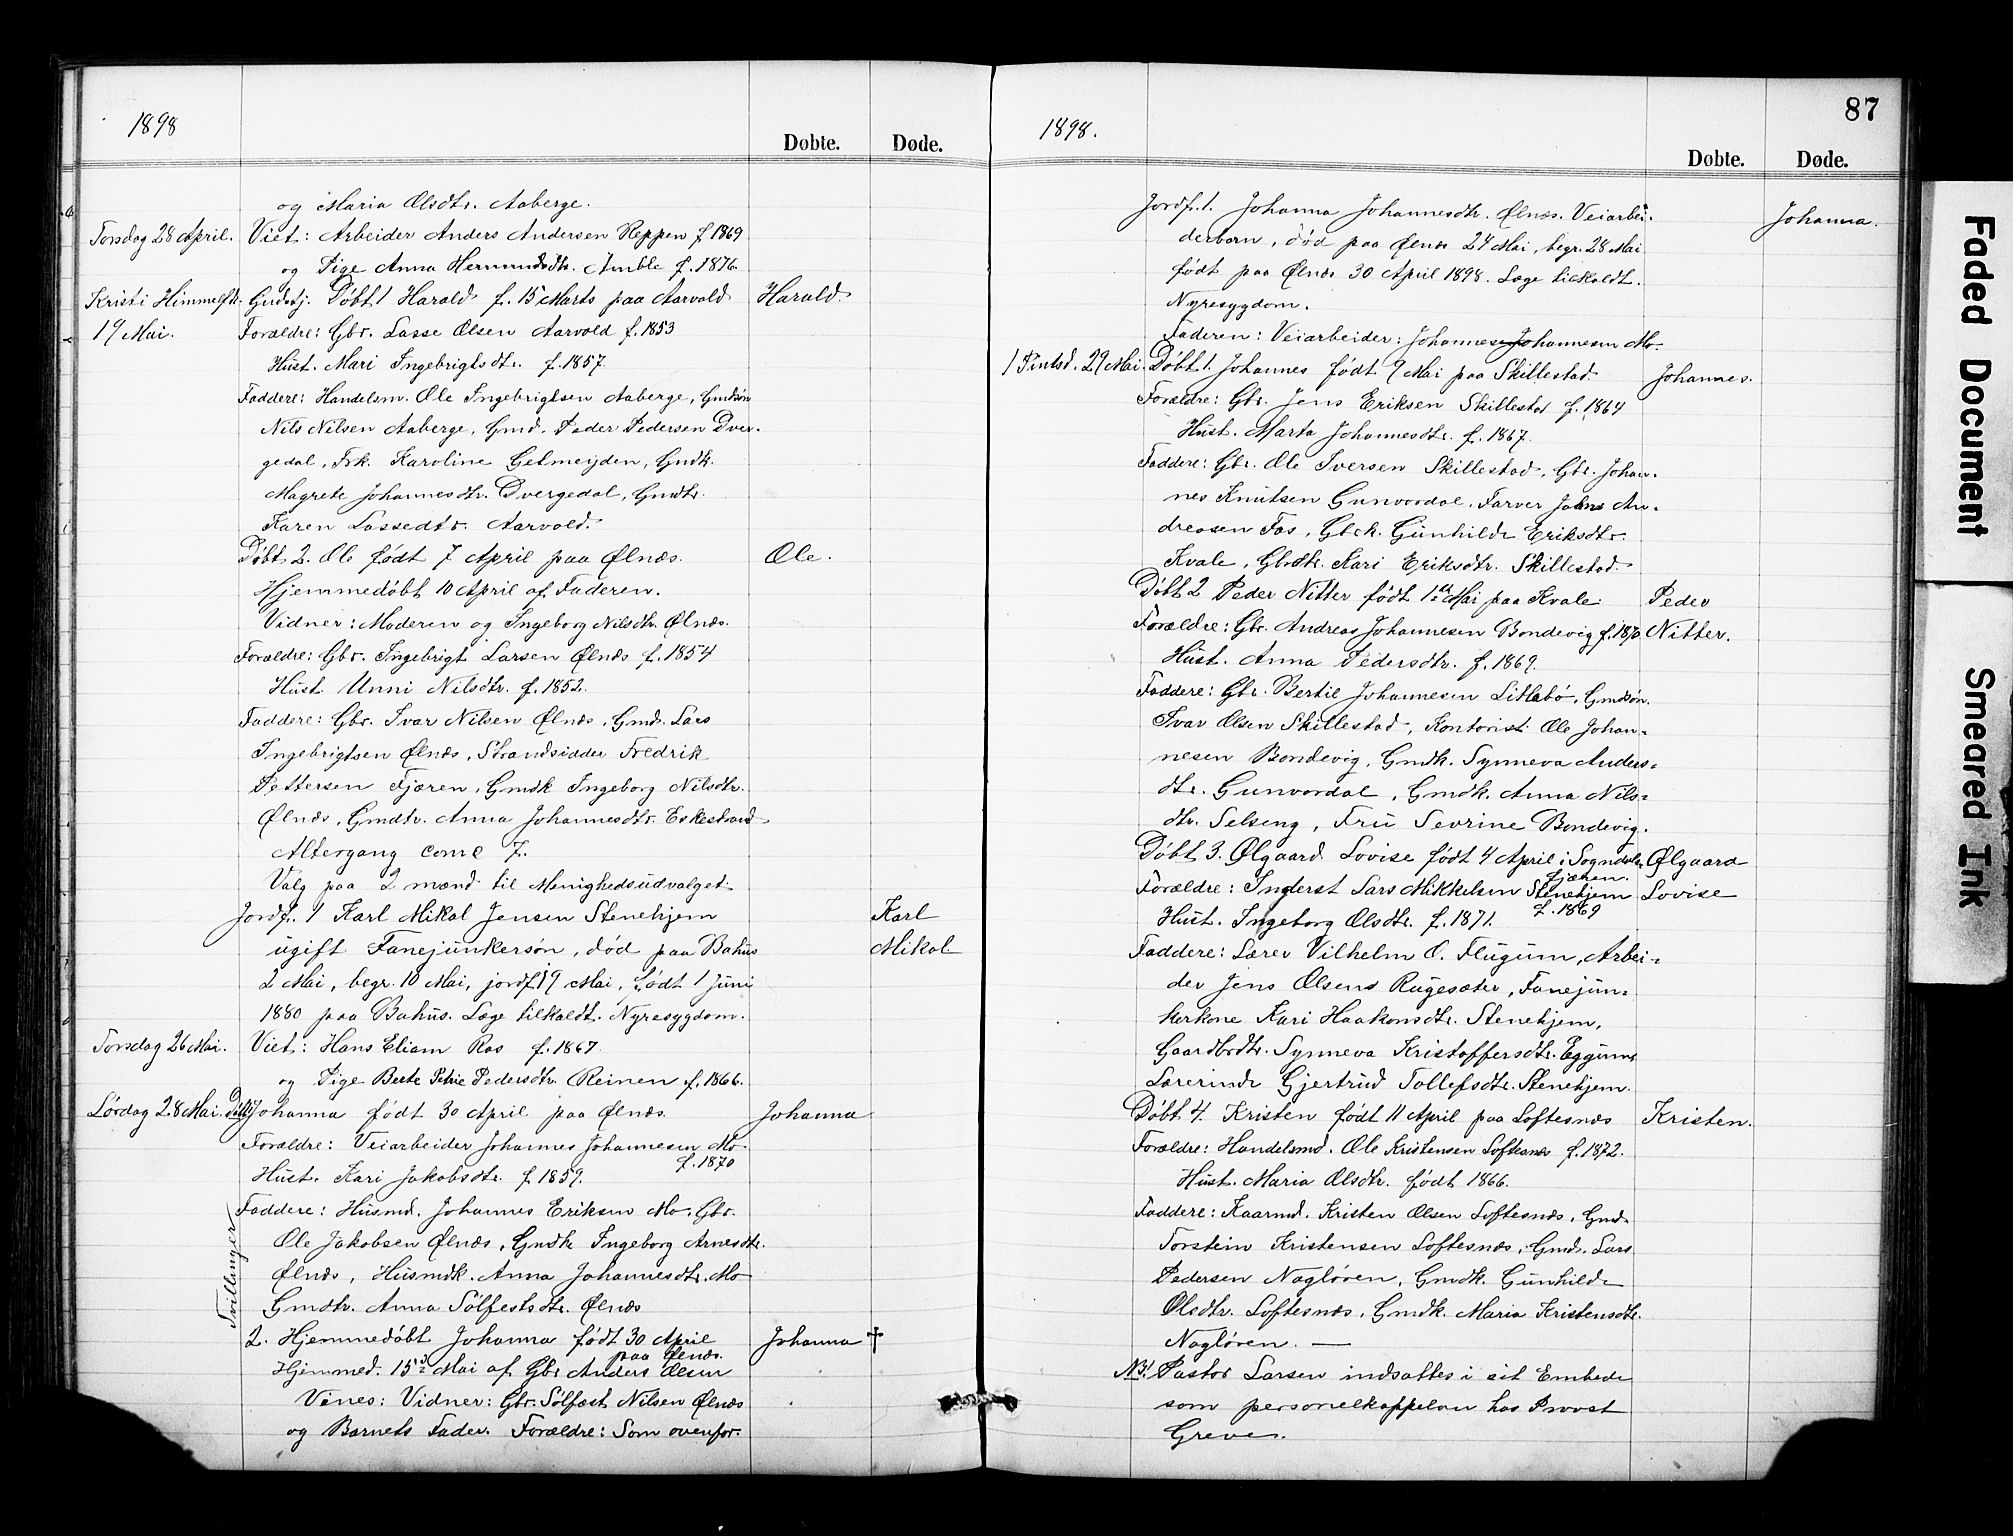 1898
Døbte. Døde.
og Maria Olsdtr. Aaberge.
Torsdag 28 April. Viet: Arbeider Anders Andersen Reppen f. 1869
og Pige Anna Hermundsdtr. Amble f. 1876.
Kristi Himmelf. Gudstj. Døbt 1 Harald f. 15 Marts paa Aarvold Harald.
19 Mai. Forældre: Gbr. Lasse Olsen Aarvold f. 1853
Hust. Mari Ingebrigtsdtr. f. 1857.
Faddere: Handelsm. Ole Ingebrigtsen Aaberge, Gmdsøn
Nils Nilsen Aaberge, Gmd. Peder Pedersen Dver-
gedal, Frk. Karoline Gelmeyden, Gmdk.
Magrete Johannesdtr. Dvergedal, Gmdtr.
Karen Lassedtr. Aarvold.
Døbt 2. Ole født 7 April paa Ølnæs. Ole.
Hjemmedøbt 10 April af Faderen.
Vidner: Moderen og Ingeborg Nilsdtr. Ølnæs.
Forældre: Gbr. Ingebrigt Larsen Ølnæs f. 1854
Hust. Unni Nilsdtr. f. 1852.
Faddere: Gbr. Ivar Nilsen Ølnæs, Gmd. Lars
Ingebrigtsen Ølnæs, Strandsidder Fredrik
Pettersen Fjæren, Gmdk Ingeborg Nilsdtr.
Ølnæs, Gmdtr. Anna Johannesdtr. Eskestrand
Altergang com: 7.
Valg paa 2 mænd til Menighedsudvalget
Jordf. 1 Karl Mikal Jensen Stenehjem Karl
ugift Fanejunkersøn, død paa Bahus Mikal
2 Mai, begr. 10 Mai, jordf. 19 Mai, født 1 Juni
1880 paa Bahus. Læge tilkaldt. Nyresygdom.
Torsdag 26 Mai. Viet: Hans Eliam Ros f. 1867.
og Pige Berte Petrie Pedersdtr. Reinen f. 1866.
Lørdag 28 Mai. Døbt 1 Johanna født 30 April paa Ølnæs Johanna
Forældre: Veiarbeider Johannes Johannesen Mo.
f. 1870
Hust. Kari Jakobsdtr. f. 1859.
Faddere: Husmd. Johannes Eriksen Mo. Gbr.
Ole Jakobsen Ølnæs, Gmdk Ingeborg Arnesdtr.
Ølnæs, Husmdk. Anna Johannesdtr. Mo
Gmdtr. Anna Sølfestsdtr. Ølnæs
Tvillinger
2. Hjemmedøbt Johanna født 30 April Johanna †
paa Ølnæs.
Hjemmed. 15 Mai af Gbr Anders Olsen
Vines: Vidner: Gbr. Sølfest Nilsen Ølnæs
og Barnets Fader. Forældre: Som ovenfor.
87
1898.
Døbte. Døde.
Jordf. 1. Johanna Johannesdtr. Ølnæs. Veiarbei- Johanna.
derbarn, død paa Ølnæs 24 Mai, begr. 28 Mai
født paa Ølnæs 30 April 1898. Læge tilkaldt.
Nyresygdom.
Faderen: Veiarbeider: Johannes Johannesen Mo.
1 Pintsd. 29 Mai. Døbt 1. Johannes født 9 Mai paa Skillestad Johannes.
Forældre: Gbr. Jens Eriksen Skillestad f. 1864
Hust. Marta Johannesdtr. f. 1867.
Faddere: Gbr. Ole Iversen Skillestad, Gbr. Johan-
nes Knutsen Gunvordal, Farver Johns An-
dreasen Fos, Gbrk. Gunhilde Eriksdtr.
Kvale, Gbrdtr. Kari Eriksdtr. Skillestad.
Døbt 2 Peder Nitter født 1ste Mai paa Kvale. Peder
Forældre: Gbr. Andreas Johannesen Bondevig f. 1870 Nitter.
Hust. Anna Pedersdtr. f. 1869.
Faddere: Gbr. Bertil Johannesen Litlabø, Gmdsøn.
Ivar Olsen Skillestad, Kontorist Ole Johan-
nesen Bondevig, Gmdk. Synneva Anders-
dtr. Gunvordal, Gmdk. Anna Nils-
dtr. Selseng, Fru Sevrine Bondevig.
Døbt 3. Ølgaard Lovise født 4 April i Sogndals Ølgaard
fjæren.
Forældre: Inderst Lars Mikkelsen Stenehjem Lovise
f. 1869
Hust. Ingeborg Olsdtr. f. 1871.
Faddere: Lærer Vilhelm O. Flugum, Arbei-
der Jens Olsens Rugesæter, Fanejun-
kerkone Kari Haakonsdtr. Stenehjem,
Gaardbrdtr. Synneva Kristoffersdtr. Eggum
Lærerinde Gjertrud Tollefsdtr. Stenehjem.
Døbt 4. Kristen født 11 April paa Loftesnæs Kristen.
Forældre: Handelsmd. Ole Kristensen Loftesnæs f. 1872.
Hust. Maria Olsdtr. født 1866.
Faddere: Kaarmd. Kristen Olsen Loftesnæs, Gmd.
Torstein Kristensen Loftesnæs, Gmd. Lars
Pedersen Nagløren, Gmdk. Gunhilde
Olsdtr. Loftesnæs, Gmdk. Maria Kristensdtr.
Nagløren. —
NB! Pastor Larsen indsattes i sit Embede
som personelkappelan hos Provst
Greve.
Faded Document
Smeared Ink